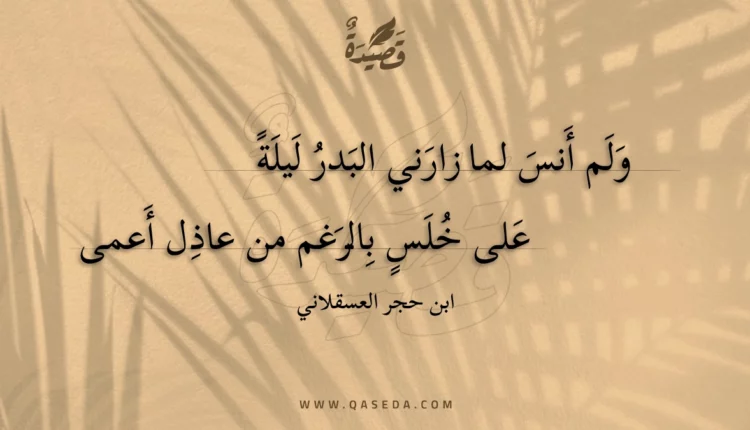 قَصِيدَةٌ
وَلَم أَنسَ لما زارَني البَدرُ لَيلَةً
عَلى خُلَسٍ بِالرَغم من عاذِل أَعمى
ابن حجر العسقلاني
WWW.QASEDA.COM